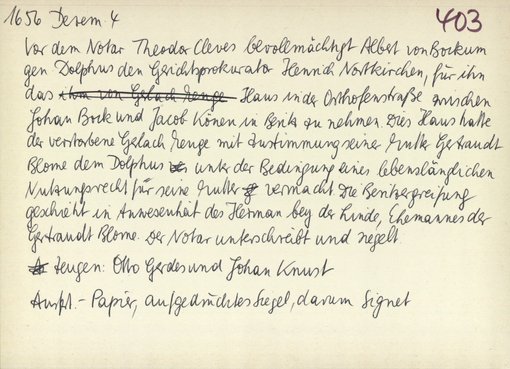 1656 Dezem. 4 403
Vor dem Notar Theodor Cleves bevollmächtigt Albert von Bockum
gen Dolphus den Gerichtsprokurator Henrich Nortkirchen, für ihn
das ihm von Gelach Zenge Haus in der Osthofenstraße zwischen
Johan Bock und Jacob Könen in Besitz zu nehmen. Dies Haus hatte
der verstorbene Gelach Zenge mit Zustimmung seiner Mutter Gertraudt
Blome dem Dolphus unter der Bedingung eines lebenslänglichen
Nutzungsrecht für seine Mutter vermacht. Die Besitzergreifung
geschieht in Anwesenheit des Herman bey der Linde, Ehemannes der
Gertraudt Blome. Der Notar unterschreibt und siegelt.
Zeugen: Otto Gerdes und Johan Knust
Ausf. - Papier, aufgedrücktes Siegel, darum Signet